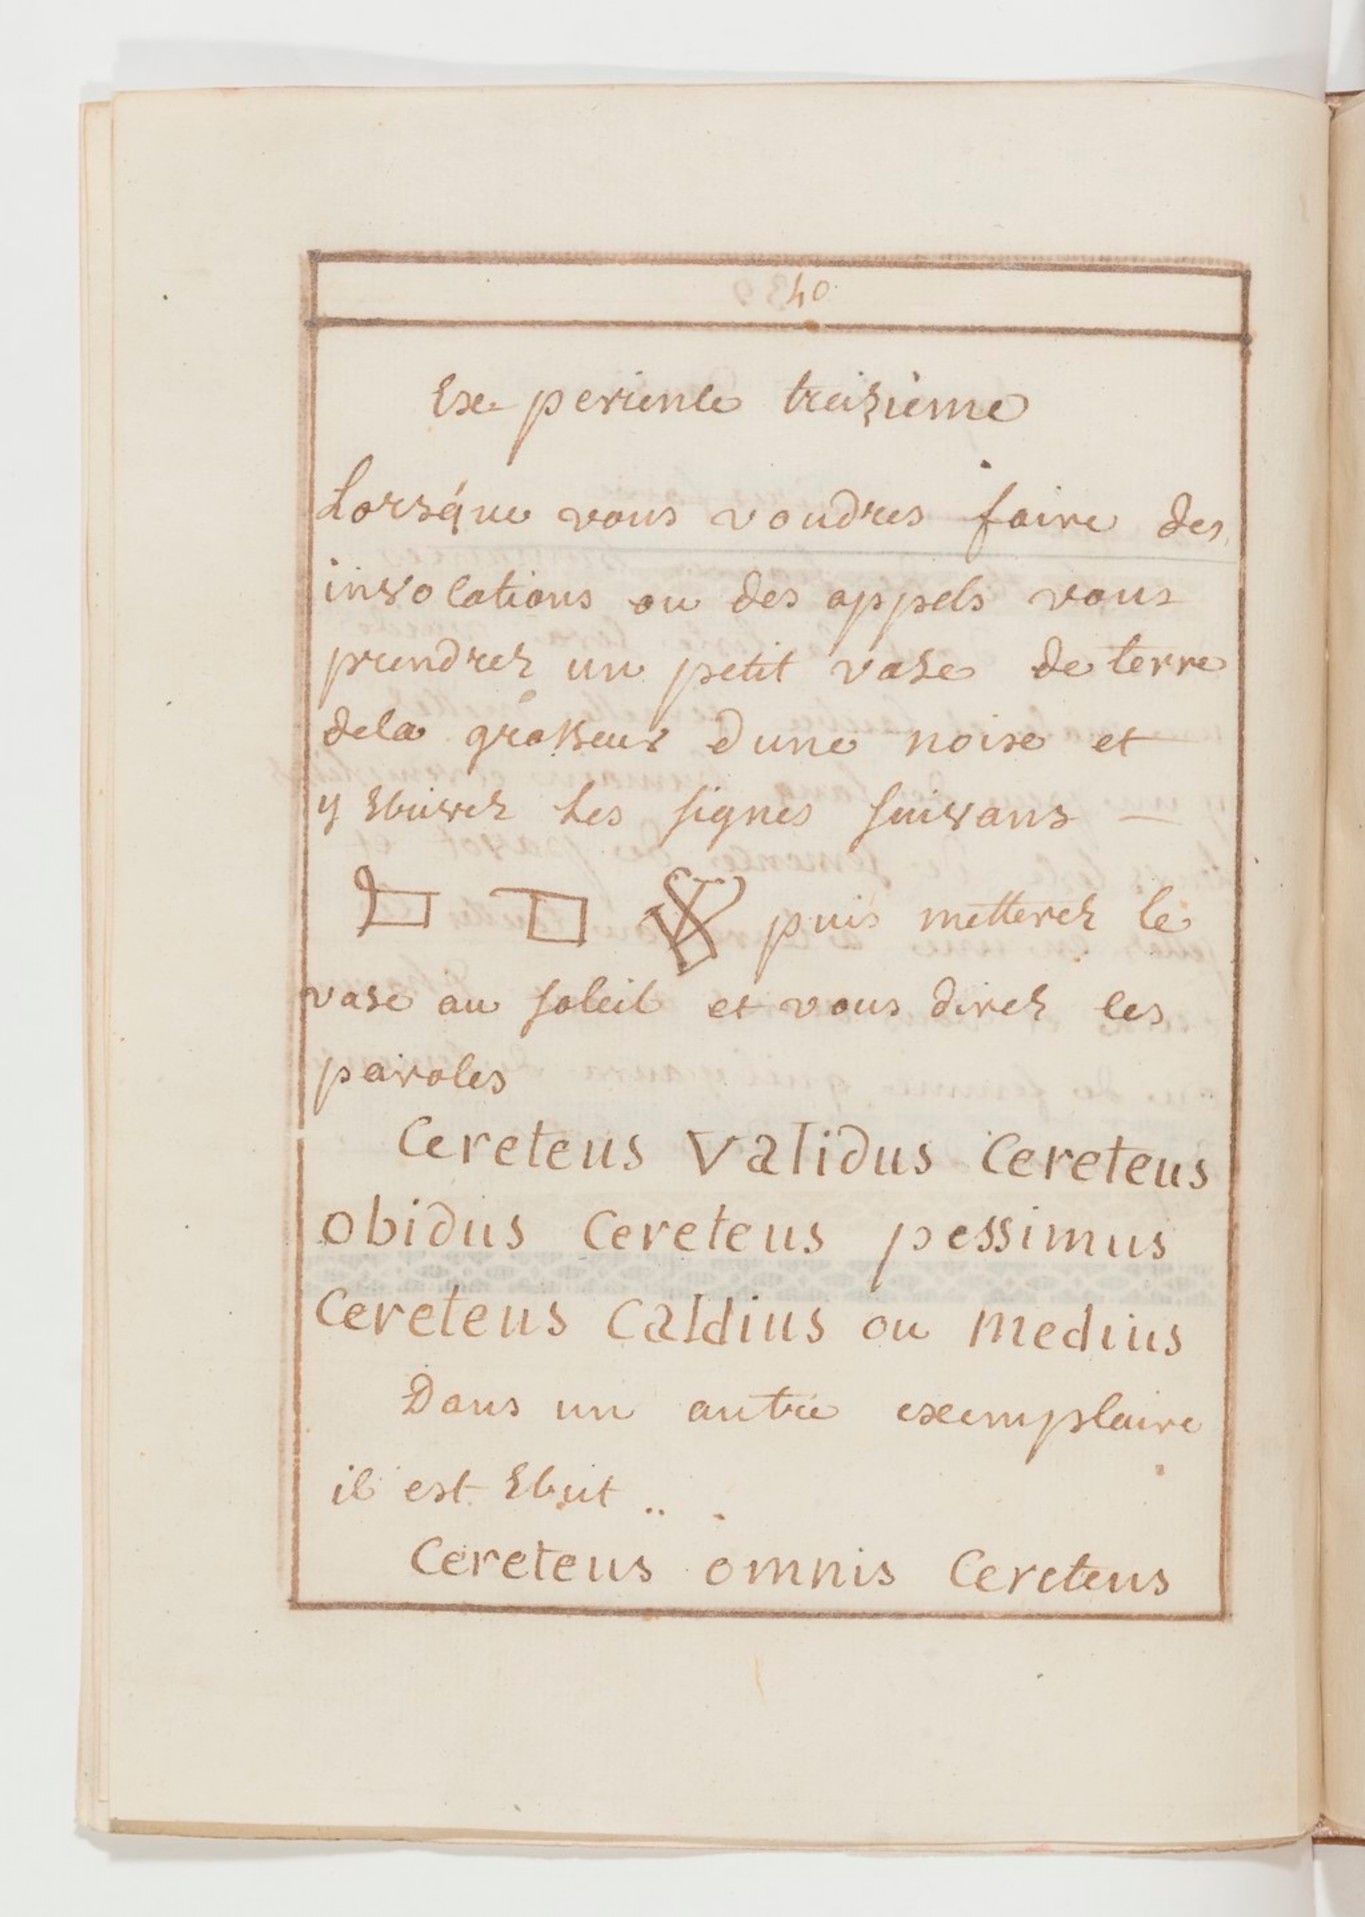 40
Experience treizieme
Lorsque vous voudres faire des
invocations ou des appels vous
prendrez un petit vase de terre
dela grosseur dune noix et
y Ecrirez Les signes suivans —
puis metterez le
vase au soleil et vous direz les
paroles
Cereteus validus Cereteus
obidus Cereteus pessimus
Cereteus Caldius ou medius
Dans un autre exemplaire
il est Ecrit ...
Cereteus omnis Cereteus